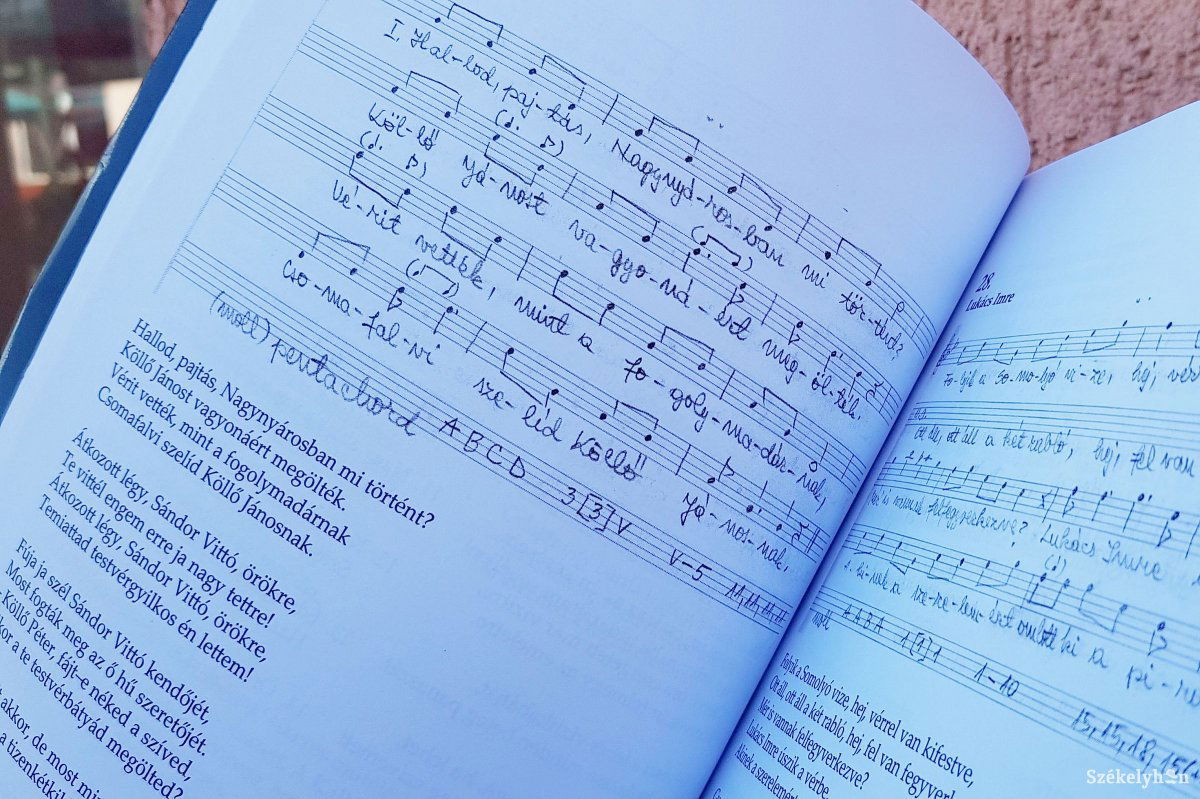 I. Hal-lod, paj-tás, Nagynyá-ros-ban mi tör-tént?
Köl-lő Já-nost va-gyo-ná-ért meg-öl-ték.
Vé-rit vették, mint a fo-goly-ma-dár-nak,
Cso-ma-fal-vi sze-líd Köllő Já-nos-nak.
(moll) pentachord A B C D 3 [3] V V-5 11, 11, 11, 11
Hallod, pajtás, Nagynyárosban mi történt?
Köllő Jánost vagyonaért megölték.
Vérit vették, mint a fogolymadárnak
Csomafalvi szelíd Köllő Jánosnak.
Átkozott légy, Sándor Vittó, örökre,
Te vittél engem erre ja nagy tettre!
Átkozott légy, Sándor Vittó, örökre,
Temiattad testvérgyilkos én lettem!
Fúja ja szél Sándor Vittó kendőjét,
Most fogták meg az ő hű szeretőjét.
Köllő Péter, fájt-e néked a szíved,
kor a te testvérbátyád megölted?
akkor, de most
a tizenkét
28.
Lukács Imre
Fo-lyik a So-mo-lyó vi-ze, hej, vér
ott áll, ott áll a két rabló, hej, fel van
is vannak felfegyverkezve? Lukács Imre
ki-nek a sze-re-lem-ért omlott ki a pi-ro
moll A A B A 1 [1] 1 1-10 15, 15, 18, 15
Folyik a Somolyó vize, hej, vérrel van kifestve,
Ott áll, ott áll a két rabló, hej, fel van
Mér is vannak felfegyverkezve?
Lukács Imre úszik a vérbe,
Akinek a
Székelyhon